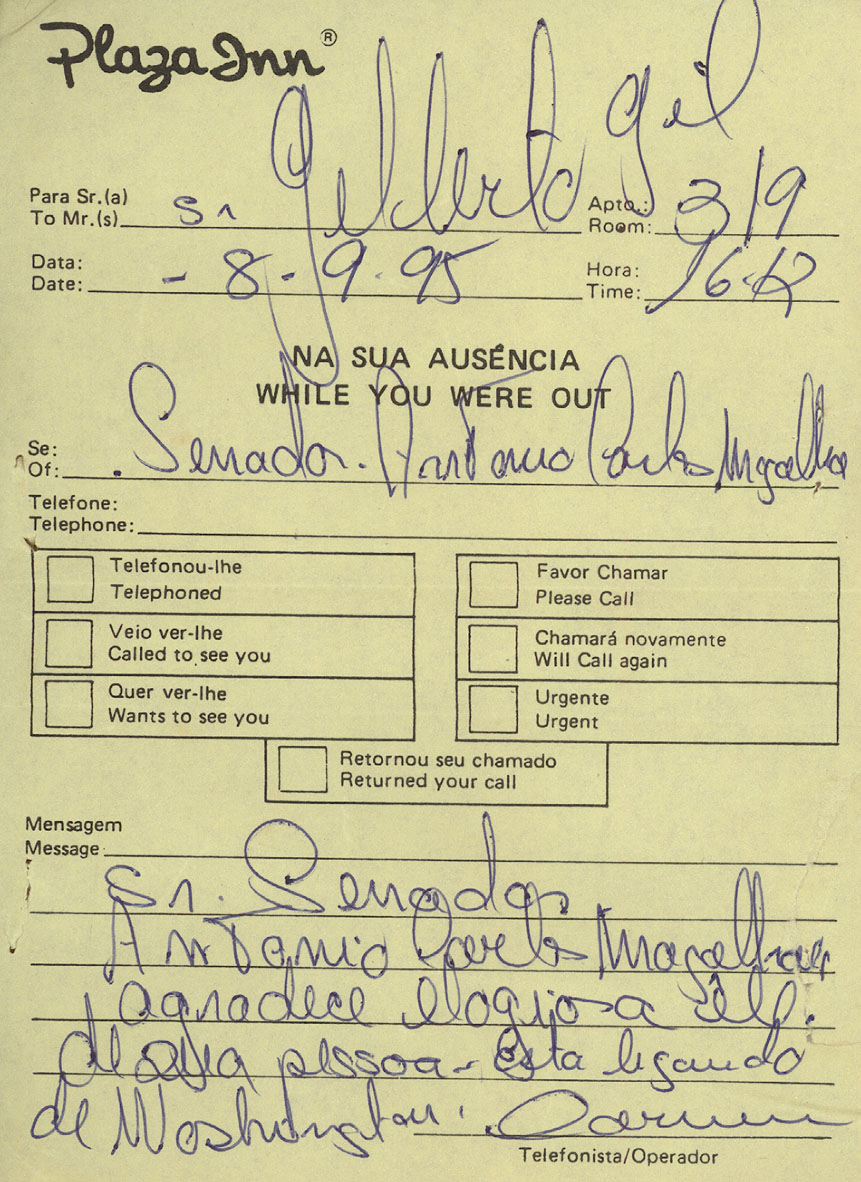 Plaza Inn®
Para Sr.(a)
To Mr.(s) Sr Gilberto Gil
Apto.:
Room: 319
Data:
Date: - 8-9-95
Hora:
Time: 16:12
NA SUA AUSÊNCIA
WHILE YOU WERE OUT
Se:
Of: . Senador. Antonio Carlos Magalhães
Telefone:
Telephone:
Telefonou-lhe
Telephoned
Favor Chamar
Please Call
Veio ver-lhe
Called to see you
Chamará novamente
Will Call again
Quer ver-lhe
Wants to see you
Urgente
Urgent
Retornou seu chamado
Returned your call
Mensagem
Message
Sr. Senador
Antonio Carlos Magalhães
agradece elogiosa
de sua pessoa - Esta ligando
de Washington. Carmen
Telefonista/Operador